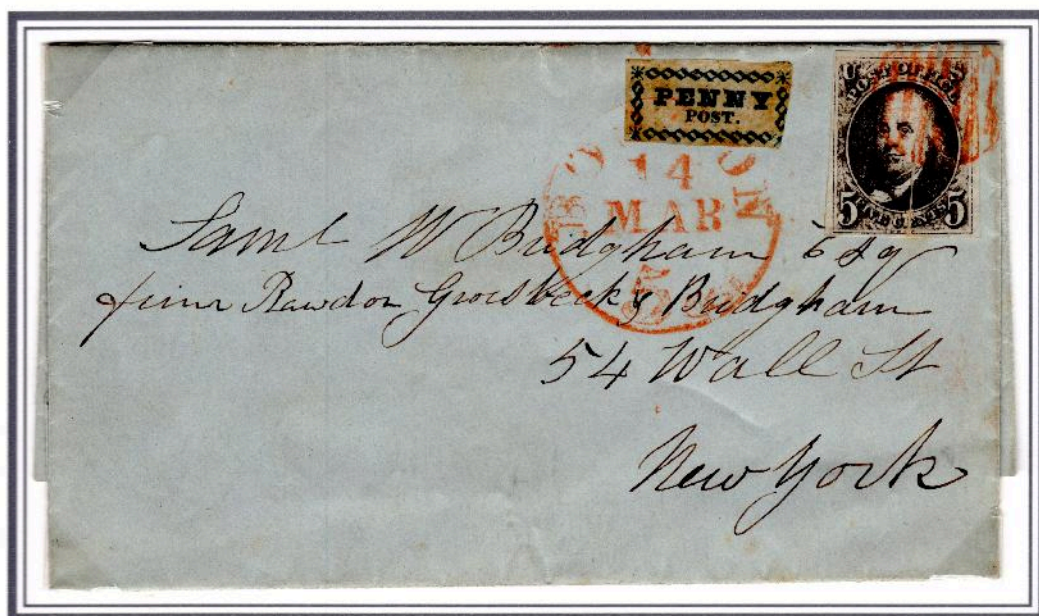 PENNY
POST.
POST OFFICE
5 5
BOSTON
14
MAR
5 cts
Saml W Bridgham Esq
firm Rawdon Groesbeck & Bridgham
54 Wall St
New York